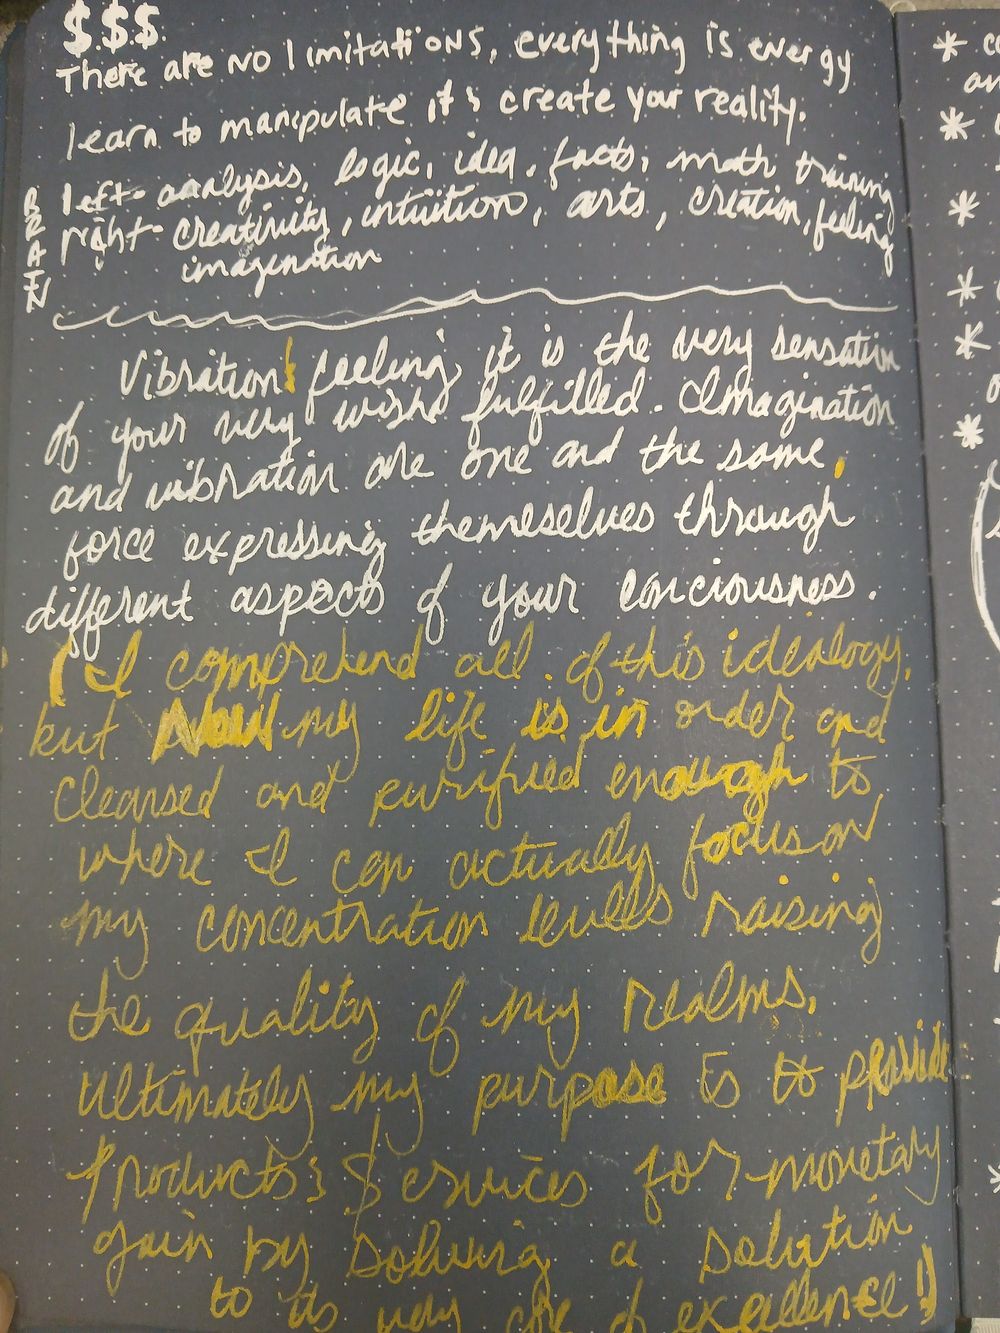 $.$.$.
There are no limitations, everything is energy
learn to manipulate it & create your reality.
BRAIN
left - analysis, logic, idea, facts, math training
right - creativity, intuition, arts, creation, feeling
imagination
Vibration! feeling, it is the very sensation
of your very wish fulfilled. Imagination
and vibration are one and the same,
force expressing themeselves through
different aspects of your conciousness.
(I comprehend all of this idealogy,
but Now my life is in order and
cleansed and purified enough to
where I can actually focus on
my concentration levels raising
the quality of my realms.
Ultimately my purpose is to provide
products & $ervices for monetary
gain by solving a solution
to its very core of excellence!)